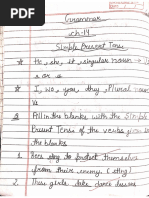 Grammar
ch-14
Simple Present Tense
He, she, it singular noun → V1
s or es
I, we, you, they, Plural noun
Fill in the blanks with the Simple
Present Tense of the verbs given in
the blanks
1. here sting to protect themselves
from their enemy. (sting)
2. These girls take dance lessons